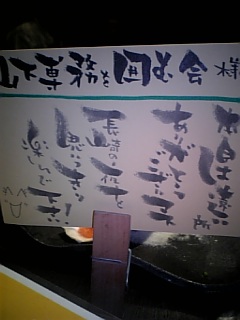 山下専務を囲む会 様
本日は誠に
ありがとうございます
長崎の夜を
思いっきり
楽しんで下さい!